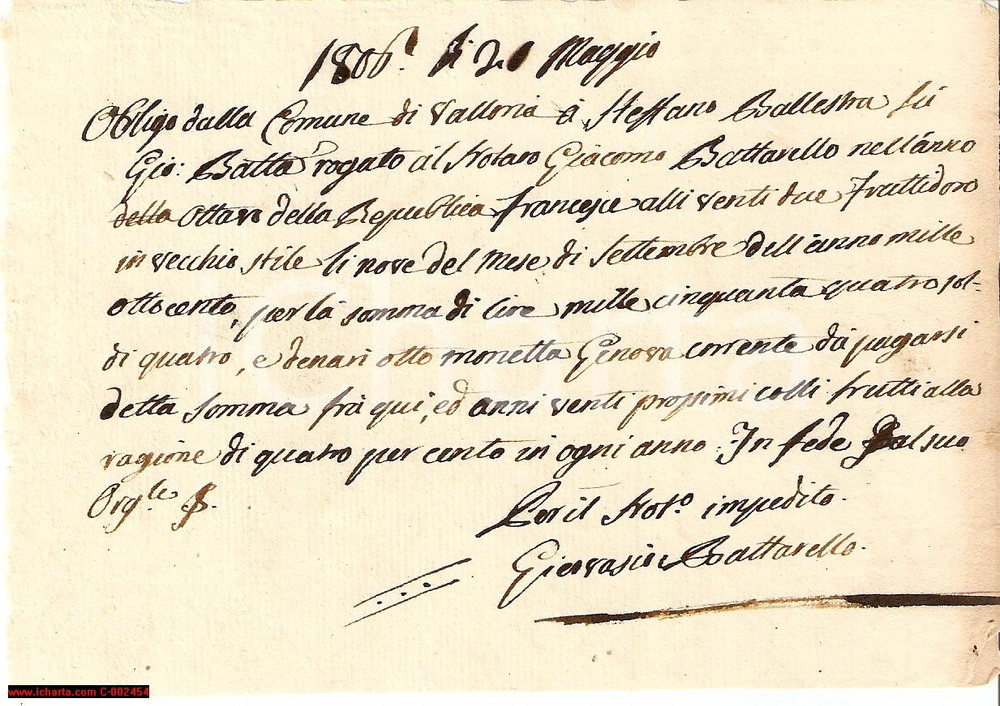 1806. li 20 Maggio
Obligo dalla Comune di Valloria à Steffano Ballestra fù
Gio: Batta rogato al Notaro Giacomo Battarello nell'anno
della Ottavo della Republica Francese alli venti due Fruttidoro
in vecchio stile li nove del Mese di Settembre dell'anno mille
ottocento, per la somma di lire mille cinquanta quatro sol-
di quatro, e denari otto monetta Genova corrente da pagarsi
detta somma frà qui, ed anni venti prossimi colli frutti alla
ragione di quatro per cento in ogni anno. In fede dal suo
Orig.le
Per il Not.o impedito.
Giervasio Battarello.
www.icharta.com C-002454